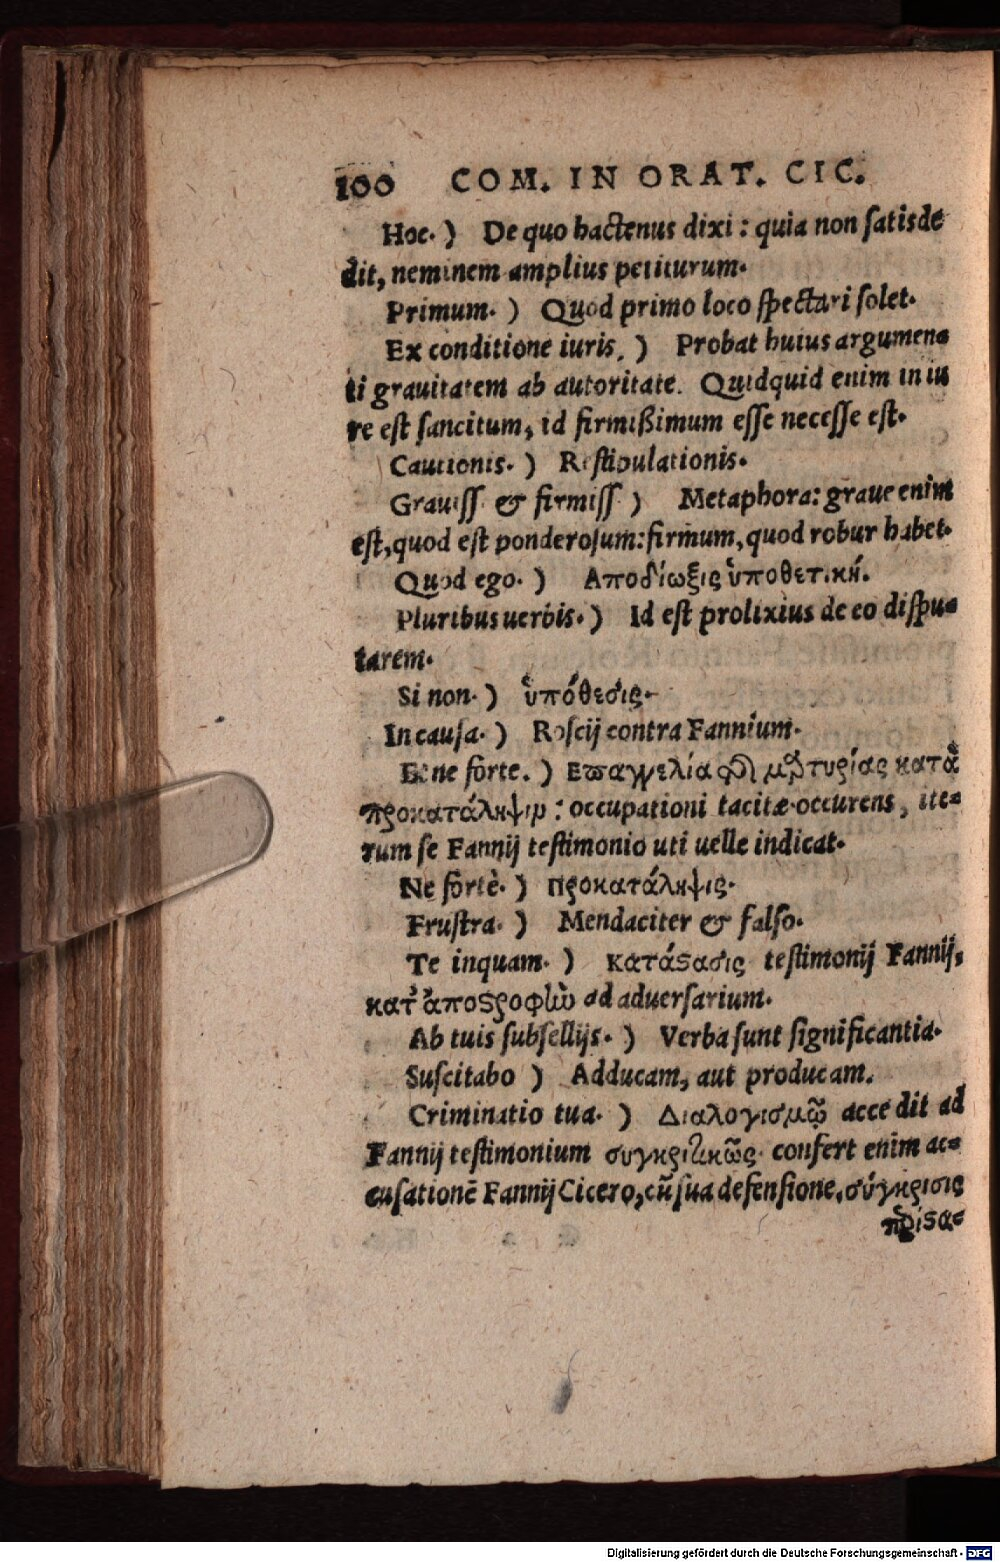 100 COM. IN ORAT. CIC.
Hoc. ) De quo hactenus dixi : quia non satisde
dit, neminem amplius petiturum.
Primum. ) Quod primo loco spectari solet.
Ex conditione iuris. ) Probat huius argumen-
ti grauitatem ab autoritate. Quidquid enim in iu
re est sancitum, id firmißimum esse necesse est.
Cautionis. ) Restipulationis.
Grauiss. & firmiss. ) Metaphora: graue enim
est, quod est ponderosum: firmum, quod robur habet.
Quod ego. ) Αποδίωξις ὑποθετική.
Pluribus uerbis. ) Id est prolixius de eo dispu-
tarem.
Si non. ) ὑπόθεσις.
In causa. ) Roscij contra Fannium.
Bene forte. ) Επαγγελία μαρτυρίας κατὰ
προκατάληψιν : occupationi tacitæ occurens, ite-
rum se Fannij testimonio uti uelle indicat.
Ne fortè. ) προκατάληψις.
Frustra. ) Mendaciter & falso.
Te inquam. ) κατάϛασις testimonij Fannij,
κατ' ἀποϛροφὼ ad aduersarium.
Ab tuis subsellijs. ) Verba sunt significantia.
Suscitabo ) Adducam, aut producam.
Criminatio tua. ) Διαλογισμῷ accedit ad
Fannij testimonium συγκριτικῶς. confert enim ac-
cusationē Fannij Cicero, cū sua defensione, σύγκρισις
Digitalisierung gefördert durch die Deutsche Forschungsgemeinschaft - DFG